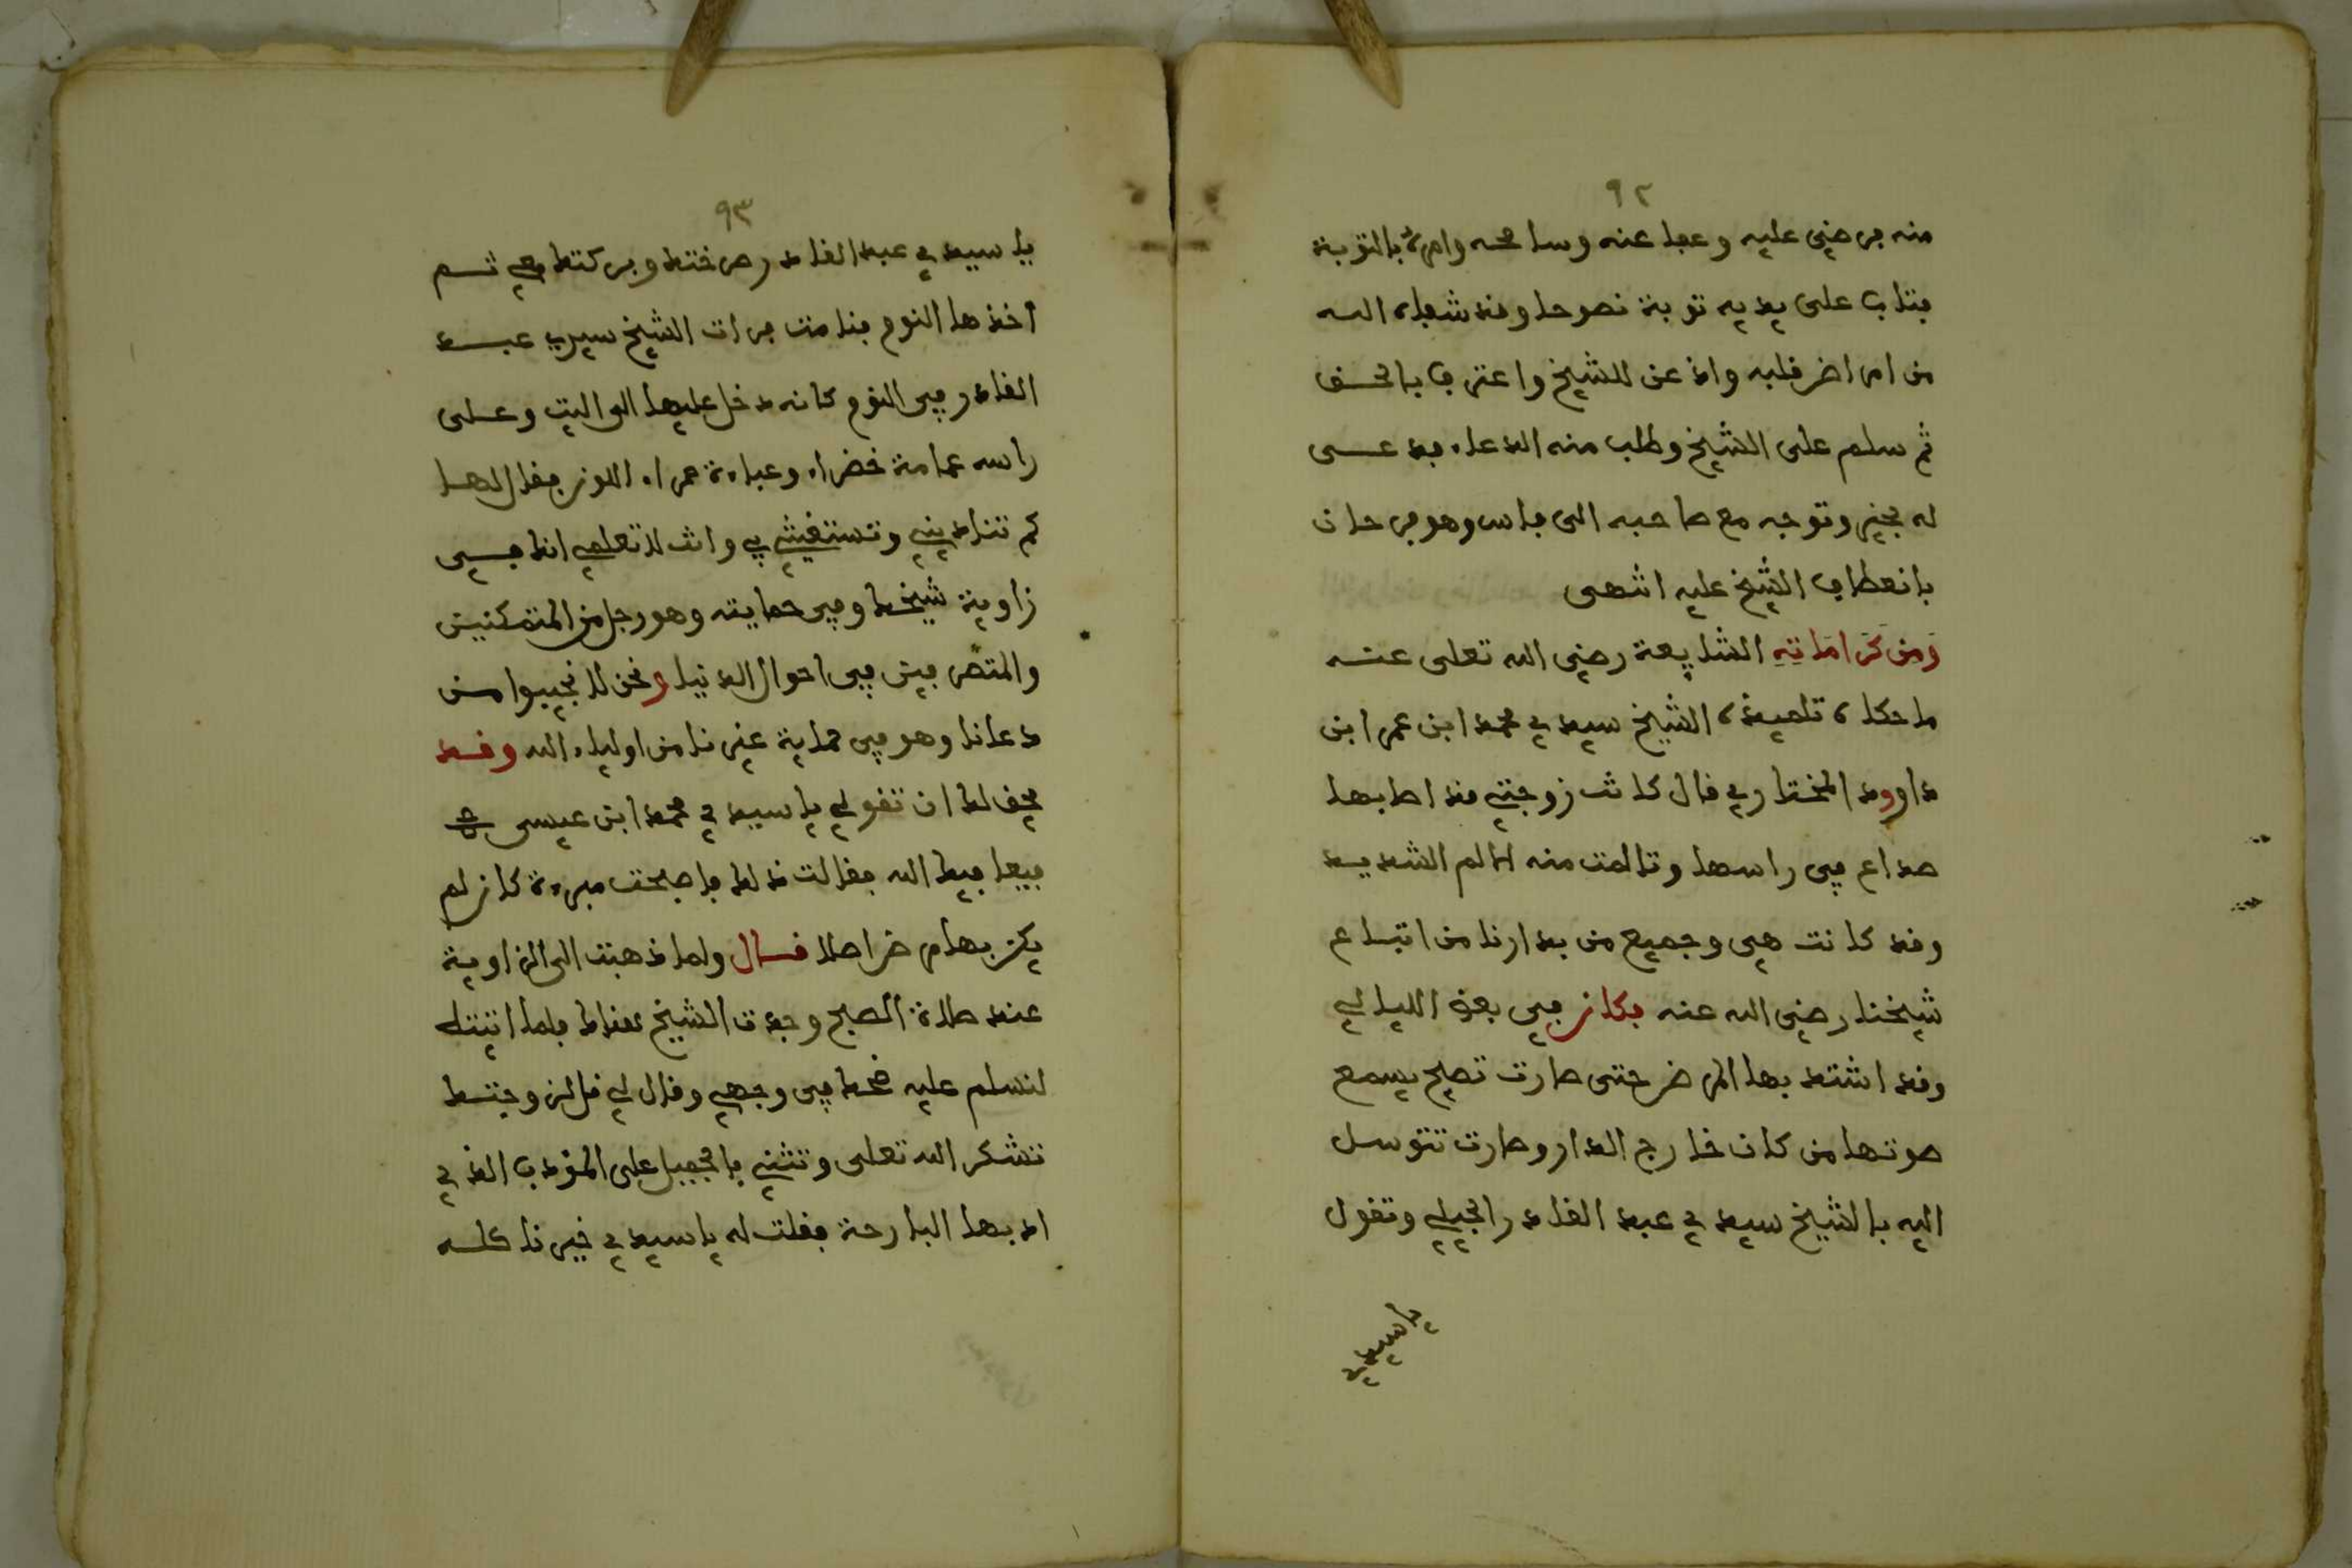 ٩٢
منه فرضي عليه وعفا عنه وسامحه وامره بالتوبة
فتاب على يديه توبة نصوحا وقد شفاه الله
من امراض قلبه واذعن للشيخ واعترف بالحق
ثم سلم على الشيخ وطلب منه الدعاء فدعى
له بخير وتوجه مع صاحبه الى فاس وهو فرحان
بانعطاف الشيخ عليه انتهى
وَمِن كَرَامَاتِهِ الشايعة رضي الله تعلى عنه
ما حكاه تلميذه الشيخ سيدي محمد ابن عمر ابن
داوود المختاري قال كانت زوجتي قد اصابها
صداع في راسها وتالمت منه الالم الشديد
وقد كانت هي وجميع من بدارنا من اتباع
شيخنا رضي الله عنه فكان في بعض الليالي
وقد اشتد بها المرض حتى صارت تصيح يسمع
صوتها من كان خارج الدار وصارت تتوسل
اليه بالشيخ سيدي عبد القادر الجيلي وتقول
يا سيدي
٩٣
يا سيدي عبد القادر رضختك وبركتك معي ثم
اخذها النوم فنامت فرات الشيخ سيدي عبد
القادر في النوم كانه دخل عليها الى البيت وعلى
راسه عمامة خضراء وعباءة حمراء اللون فقال لها
كم تناديني وتستغيثي بي وانت لا تعلمي انك في
زاوية شيخك وفي حمايته وهو رجل من المتمكنين
والمتصرفين في احوال الدنيا ونحن لا نجيبوا من
دعانا وهو في حماية غيرنا من اولياء الله وقد
يحق لك ان تقولي يا سيدي محمد ابن عيسى
فيعافيك الله فقالت ذلك فاصبحت مبرءة كان لم
يكن بها مرض اصلا قال ولما ذهبت الى الزاوية
عند صلاة الصبح وجدت الشيخ هناك فلما اتيته
لنسلم عليه ضحك في وجهي وقال لي قل لزوجتك
تشكر الله تعلى وتثني بالجميل على المؤدب الذي
ادبها البارحة فقلت له يا سيدي خيرنا كله